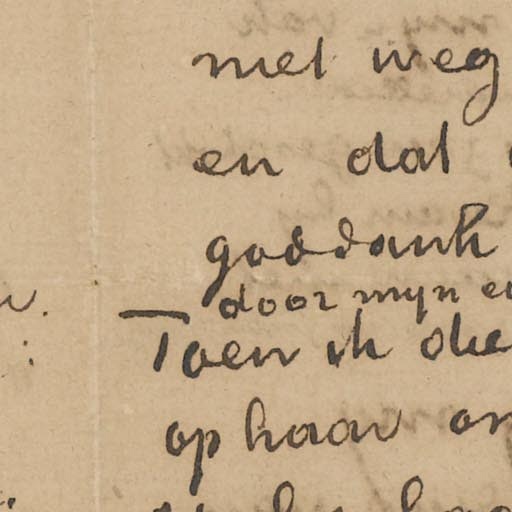 niet weg
en dat
goddank
door myn
Toen ik die
op haar